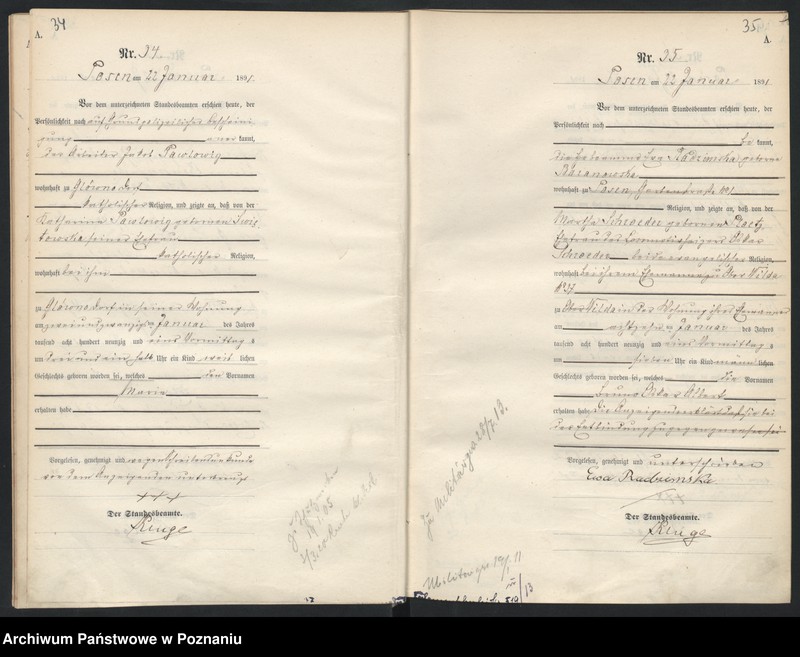 34
A.
Nr. 34.
Posen am 22 Januar 1891.
Vor dem unterzeichneten Standesbeamten erschien heute, der
Persönlichkeit nach auf Grund polizeilicher Bescheini-
gung anerkannt,
der Arbeiter Jakob Pawlowig
wohnhaft zu Glówno Dorf
katholischer Religion, und zeigte an, daß von der
Katharina Pawlowig geborenen
seiner Ehefrau
katholischer Religion,
wohnhaft bei ihm
zu Glówno Dorf in seiner Wohnung
am ein und zwanzigsten Januar des Jahres
tausend acht hundert neunzig und eins Vormittags
um drei und ein halb Uhr ein Kind weiblichen
Geschlechts geboren worden sei, welches den Vornamen
Maria
erhalten habe
Vorgelesen, genehmigt und wegen Schreibensunkunde
von dem Anzeigenden unterkreuzt
+++
Der Standesbeamte.
Kruge
35
A.
Nr. 35
Posen am 22 Januar 1891
Vor dem unterzeichneten Standesbeamten erschien heute, der
Persönlichkeit nach
be kannt,
die Hebeamme Eva Radzimska geborene
Baranowska
wohnhaft zu Posen, Gartenstraße
Religion, und zeigte an, daß von der
Martha Schroeder geborenen
Ehefrau des Locomotivheizers Oskar
Schroeder beide evangelischer Religion,
wohnhaft bei ihrem Ehemanne zu Ober Wilda
No 37
zu Ober Wilda in der Wohnung ihres Ehemannes
am achtzehnten Januar des Jahres
tausend acht hundert neunzig und eins Vormittags
um sieben Uhr ein Kind männlichen
Geschlechts geboren worden sei, welches die Vornamen
Bruno Oskar Albert
erhalten habe. Die Anzeigende erklärt, daß sie bei
der Entbindung zugegen gewesen sei
Vorgelesen, genehmigt und unterschrieben
Ewa Radzimska
Der Standesbeamte.
Kruge
Archiwum Państwowe w Poznaniu